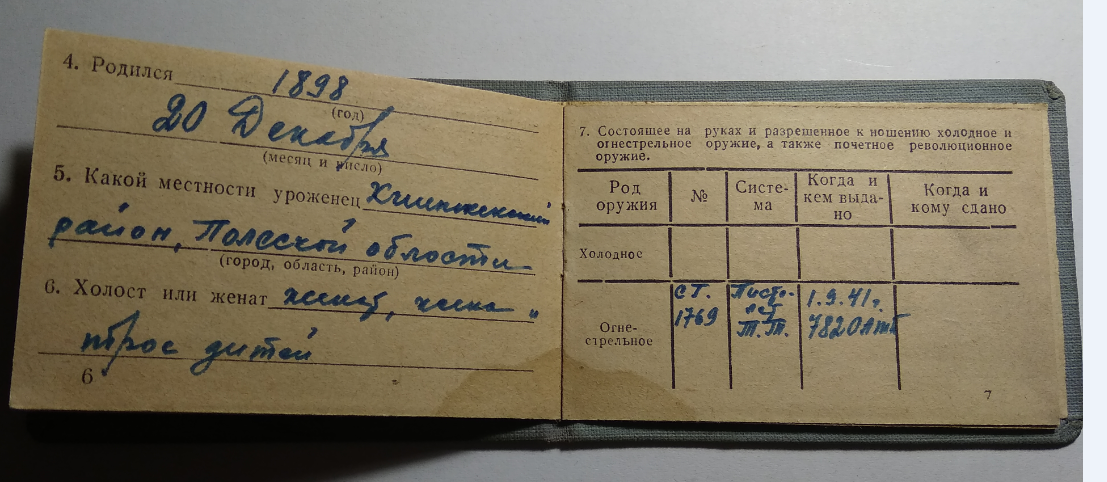 4. Родился 1898
(год)
20 Декабря
(месяц и число)
5. Какой местности уроженец
район, Полесской области
(город, область, район)
6. Холост или женат женат, жена и
трое дитей
6
7. Состоящее на руках и разрешенное к ношению холодное и
огнестрельное оружие, а также почетное революционное
оружие.
Род оружия № Систе- ма Когда и кем выда- но Когда и кому сдано
Холодное
Огне- стрельное СТ. 1769 Писто- лет Т.Т. 1.9.41 г. 782
7